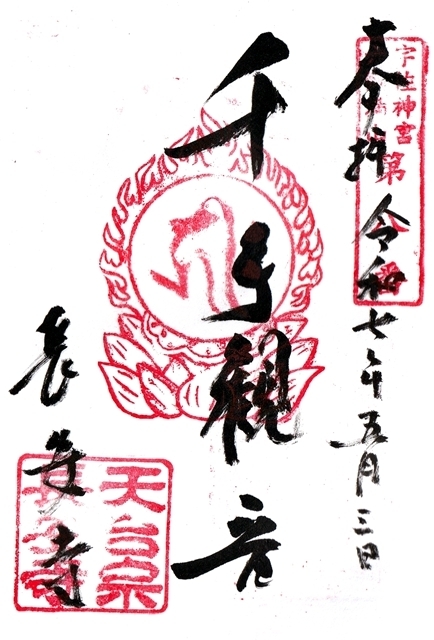 奉拝 令和七年五月三日
宇佐神宮
第
千手観音
長安寺
天台宗